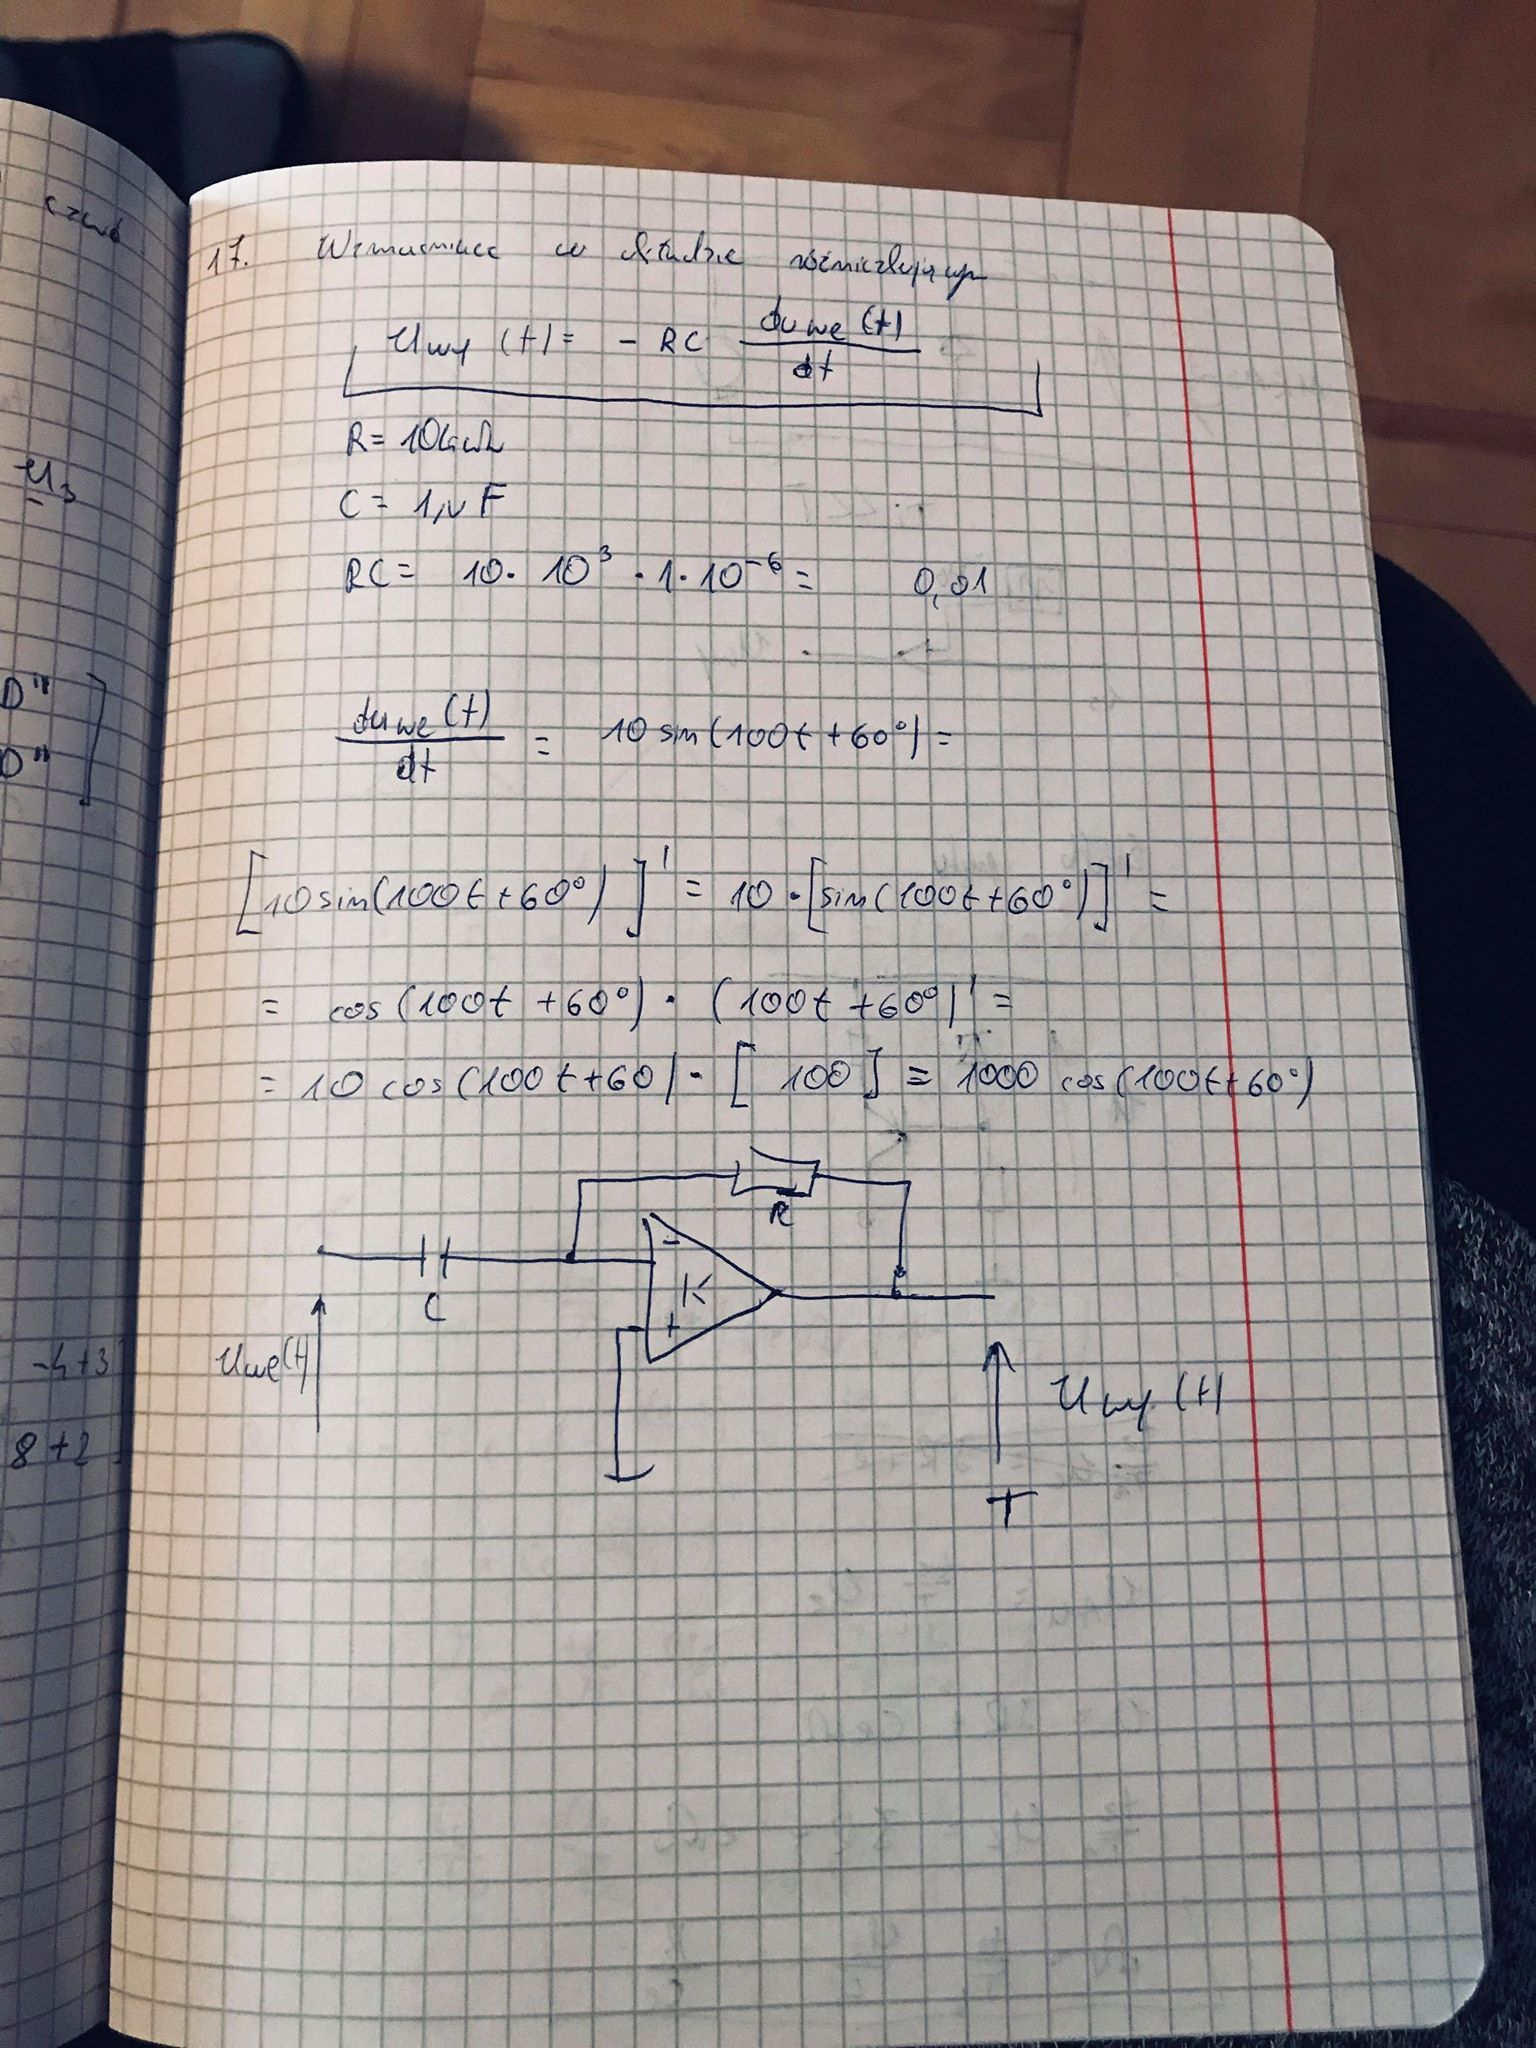 czwó
U₃
D"
D"
-4+3
8+2
17. Wzmacniacz w układzie różniczkującym
Uwy (t) = - RC duwe(t)/dt
R = 10kΩ
C = 1μF
RC = 10 · 10³ · 1 · 10⁻⁶ = 0,01
duwe(t)/dt = 10 sin(100t + 60°) =
[10 sin(100t + 60°)]' = 10 · [sin(100t + 60°)]' =
= cos(100t + 60°) · (100t + 60°)' =
= 10 cos(100t + 60) · [100] = 1000 cos(100t + 60°)
R
-
K
+
C
Uwe(t)
Uwy (t)